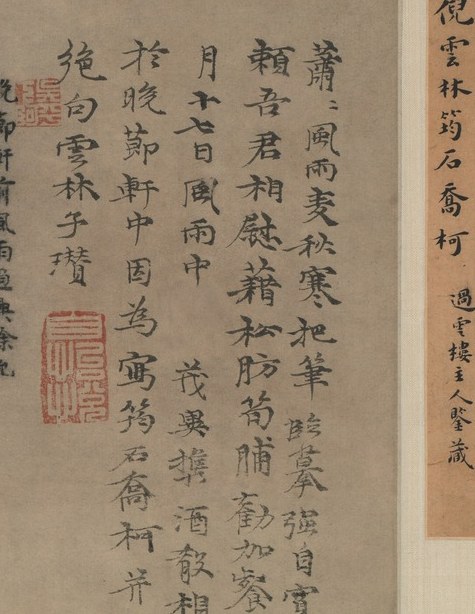 倪雲林筠石喬柯
過雲樓主人鑒藏
蕭〻風雨麦秋寒把筆臨摹強自
賴吾君相慰藉松肪筍脯勸加餐
月十七日風雨中 茂異携酒殽相
於晚節軒中因為寫筠石喬柯并
絶句雲林子瓚
晚節軒前風雨